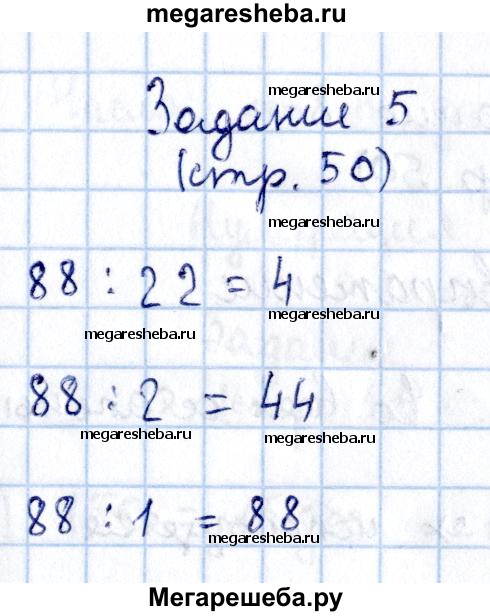 megaresheba.ru
megaresheba.ru
Задание 5
megaresheba.ru
(стр. 50)
megaresheba.ru
88 : 22 = 4
megaresheba.ru
megaresheba.ru
88 : 2 = 44
megaresheba.ru
megaresheba.ru
88 : 1 = 88
megaresheba.ru
Мегарешеба.ру